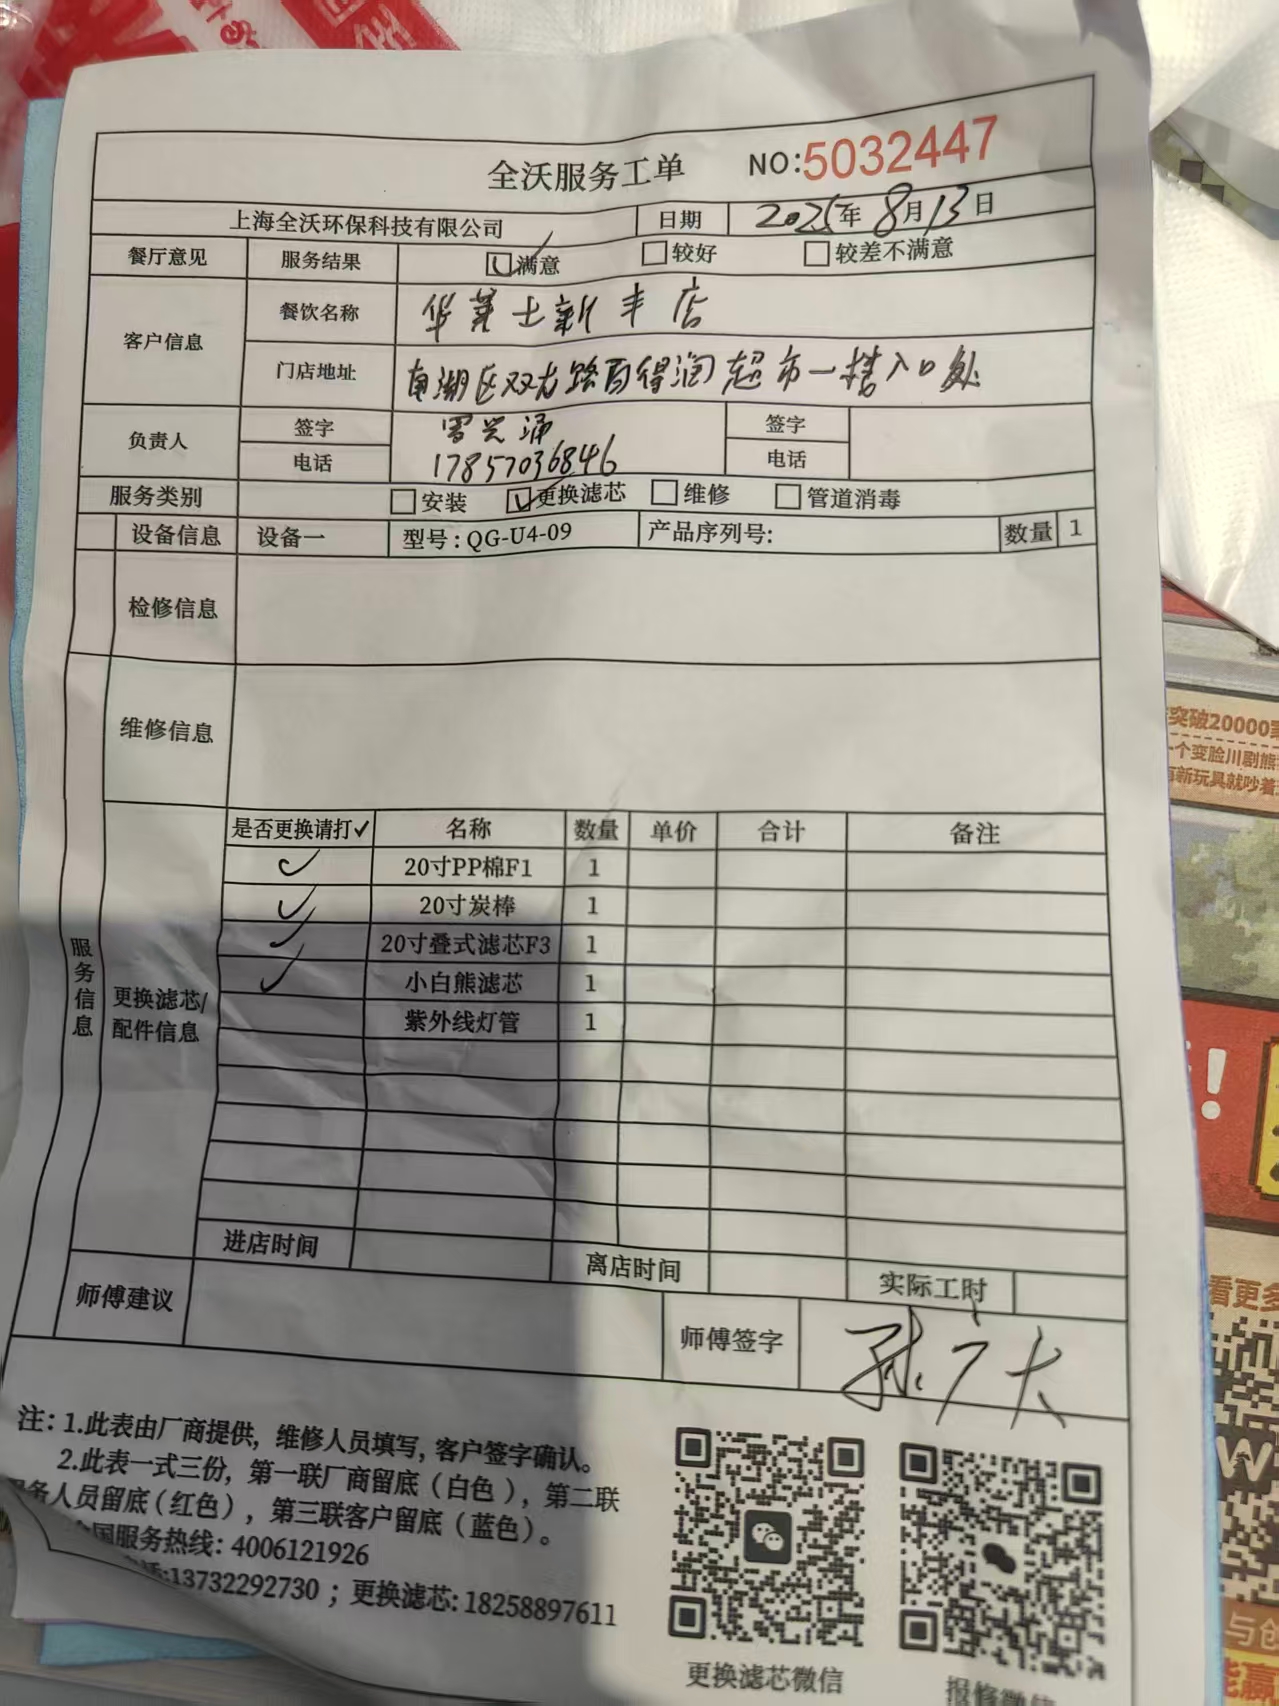 全沃服务工单 NO:5032447
上海全沃环保科技有限公司 日期 2025年8月13日
餐厅意见 服务结果 满意 较好 较差不满意
客户信息 餐饮名称 华莱士新丰店
门店地址 南湖区双龙路百得润超市一楼入口处
负责人 签字 罗兴涌 签字
电话 17857036846 电话
服务类别 安装 更换滤芯 维修 管道消毒
设备信息 设备一 型号：QG-U4-09 产品序列号: 数量 1
检修信息
维修信息
服务信息
更换滤芯/配件信息
是否更换请打✓ 名称 数量 单价 合计 备注
✓ 20寸PP棉F1 1
✓ 20寸炭棒 1
✓ 20寸叠式滤芯F3 1
✓ 小白熊滤芯 1
紫外线灯管 1
进店时间 离店时间 实际工时
师傅建议 师傅签字 孙广大
注：1.此表由厂商提供，维修人员填写，客户签字确认。
2.此表一式三份，第一联厂商留底（白色），第二联
务人员留底（红色），第三联客户留底（蓝色）。
国服务热线：4006121926
:13732292730；更换滤芯：18258897611
更换滤芯微信
报修微信
突破20000
一个变脸川剧熊
新玩具就吵着
！
看更多
W
与创
能赢